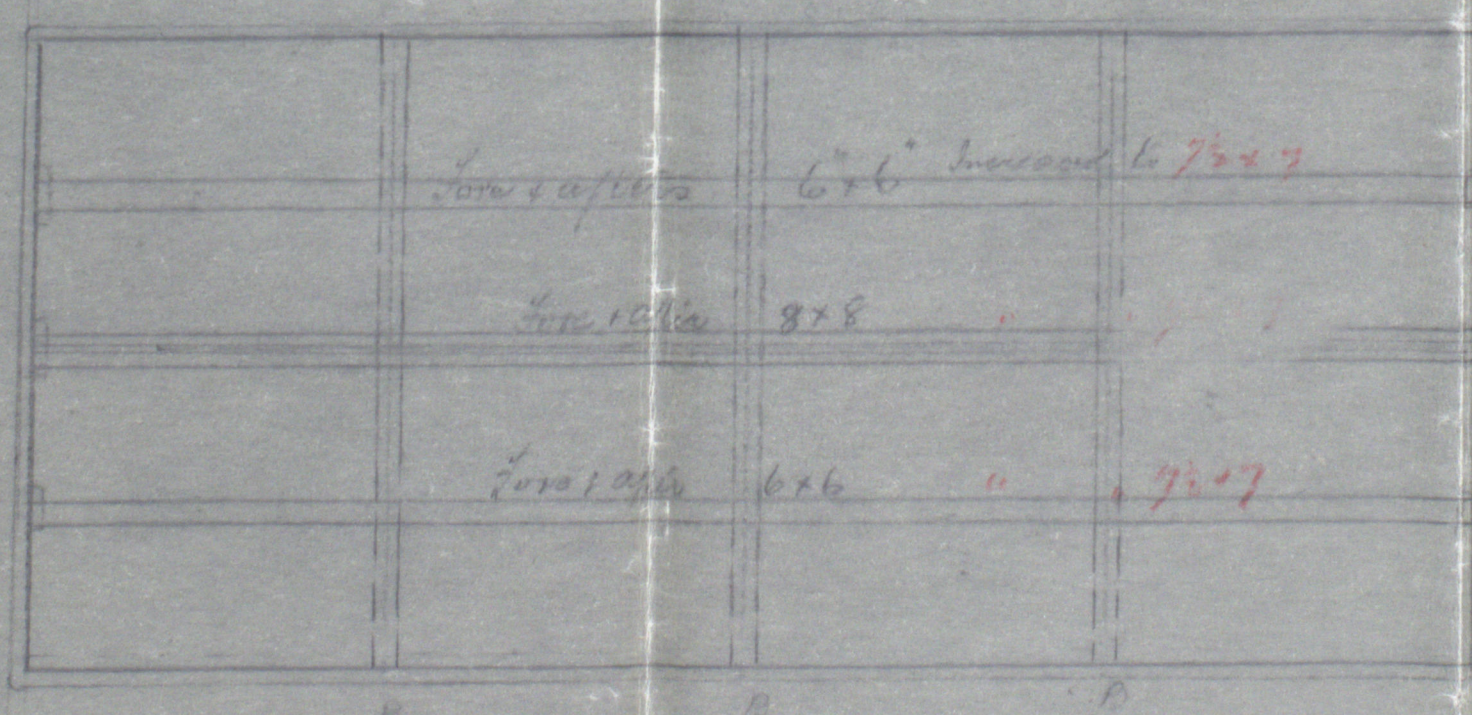 Fore & afters 6" x 6" Increased to 7½ x 7
Fore & after 8 x 8 " "
Fore & after 6 x 6 " " 7½ x 7
B